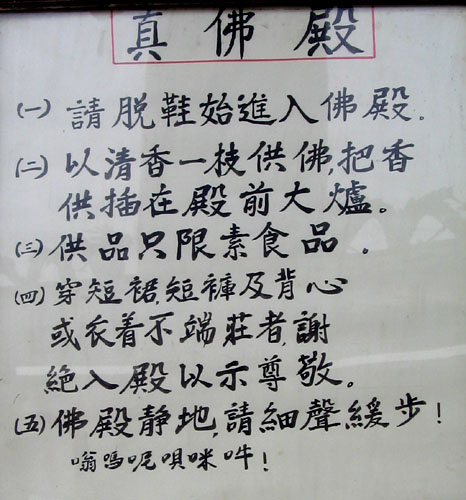 真佛殿
(一) 請脱鞋始進入佛殿。
(二) 以清香一枝供佛,把香
供插在殿前大爐。
(三) 供品只限素食品。
(四) 穿短裙,短褲及背心
或衣着不端莊者,謝
絶入殿以示尊敬。
(五) 佛殿静地,請細聲緩步!
嗡嗎呢唄咪吽!